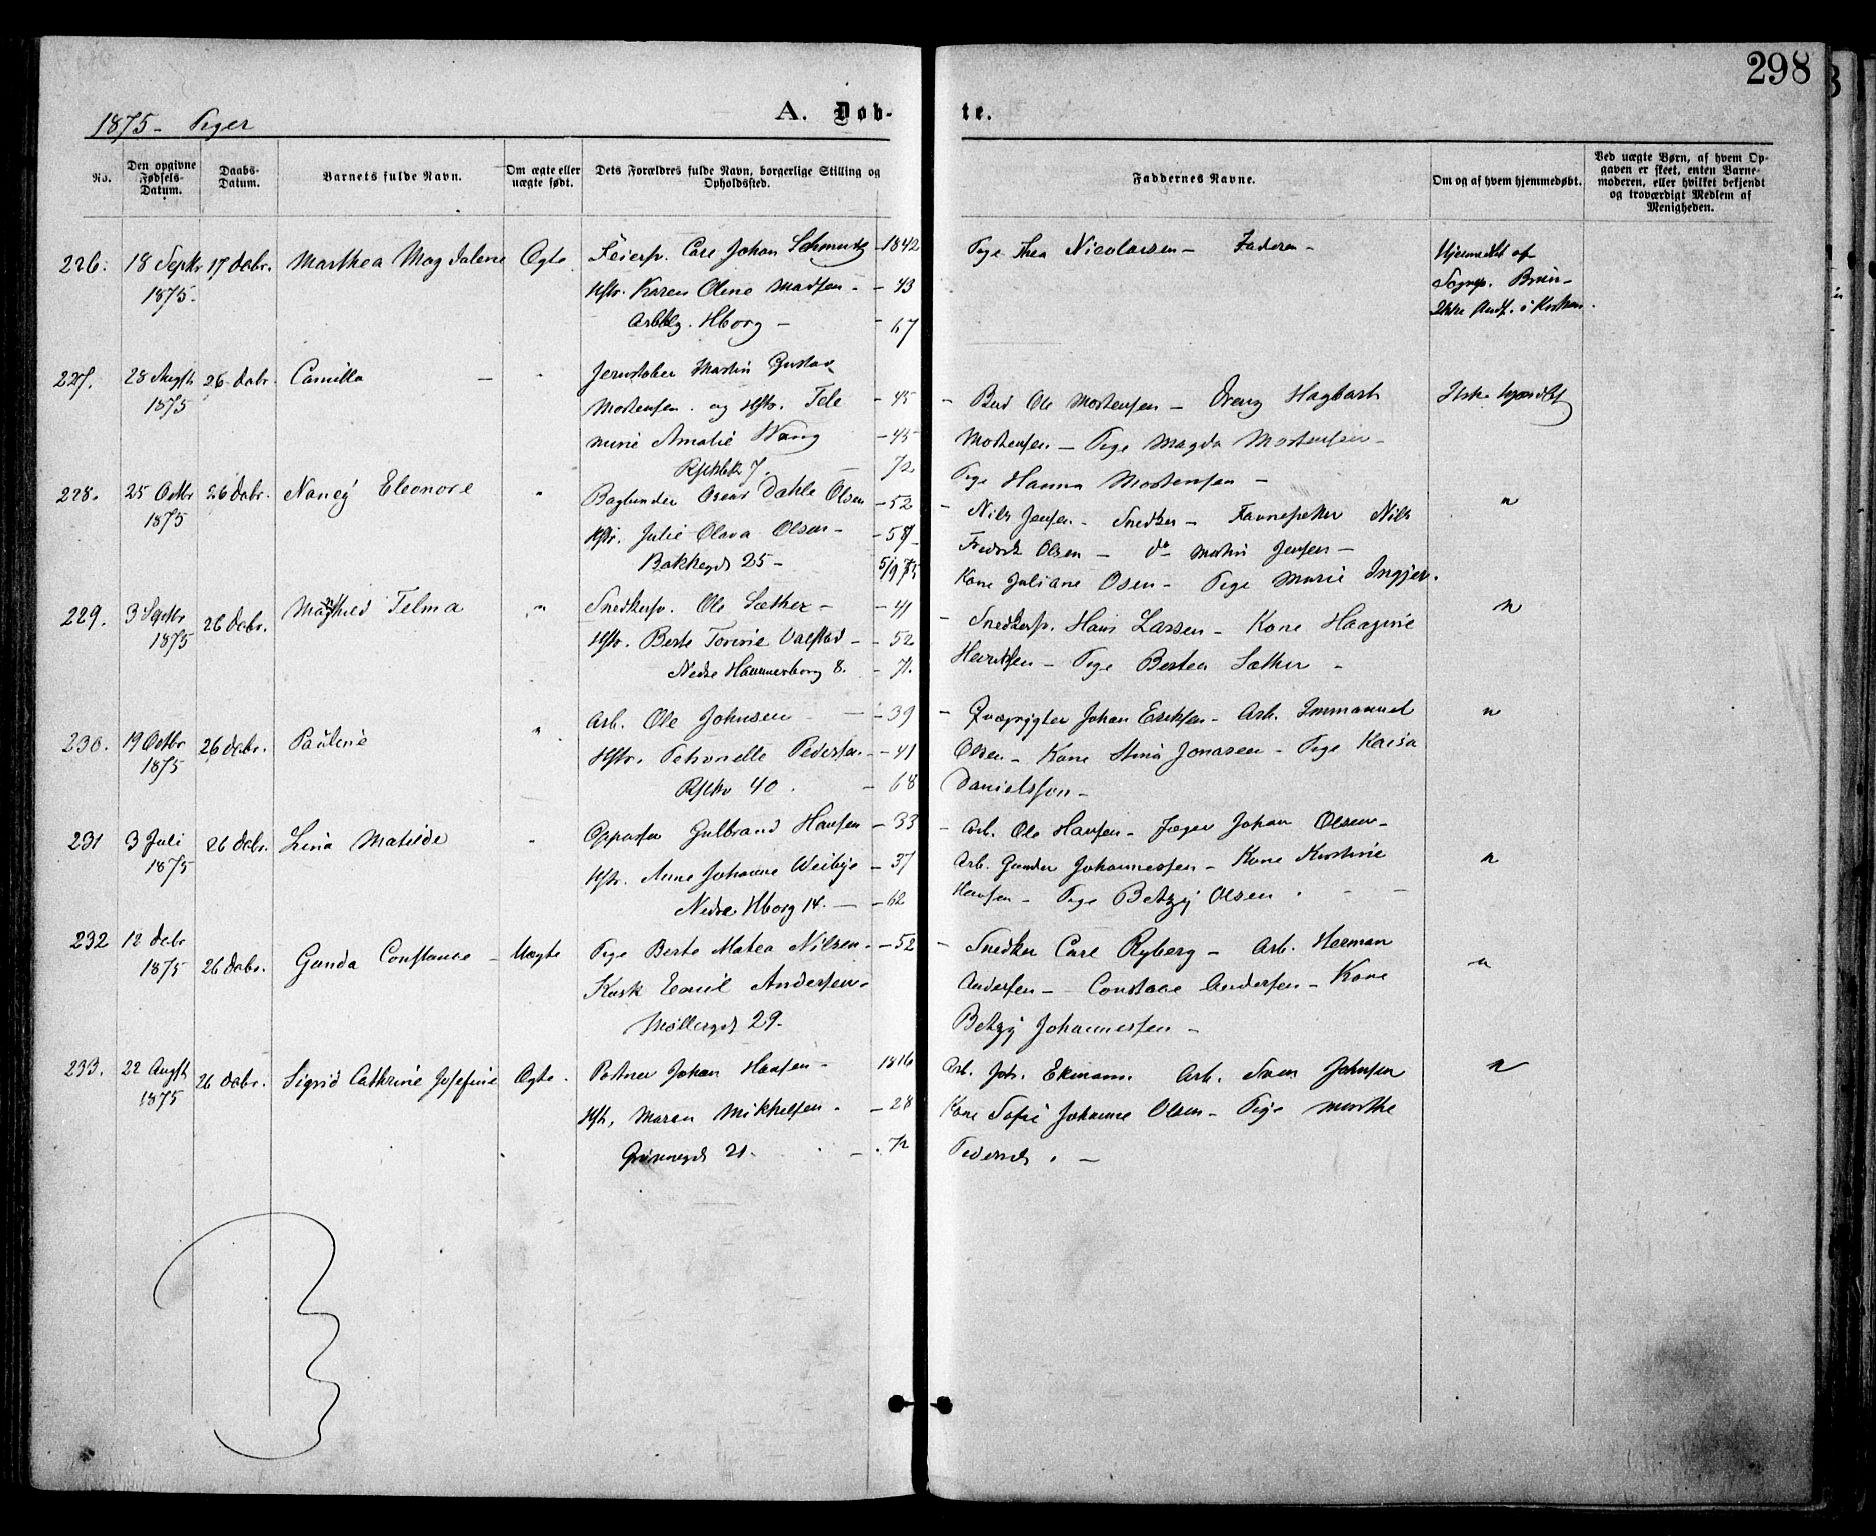 298
1875 - Piger
A. Døb-
te.
No.
Den opgivne Fødsels-Datum.
Daabs-Datum.
Barnets fulde Navn.
Om ægte eller uægte født.
Dets Forældres fulde Navn, borgerlige Stilling og Opholdssted.
Faddernes Navne.
Om og af hvem hjemmedøbt.
Ved uægte Børn, af hvem Op-
gaven er skeet, enten Barne-
moderen, eller hvilket bekjendt
og troværdigt Medlem af
Menigheden.
226. 18 Septr 17 Decbr. Marthea Magdalene Ægte Feiersv. Carl Johan Schmidtz - 1842 Pige Thea Nicolaisen - Faderen - Hjemmedøbt af
1875. Hstr. Karen Oline Madsen - - 43 Sognep. Bruun -
Hborg - - 67 Ikke i Kirken.
227. 28 Augst 26 Decbr. Camilla - Jernstøber Martin Gustav
1875 Mortensen og Hstr. Pele - 45 - Ole Mortensen - Dreng Hagbart
mine Amalie Wang - 45 Mortensen - Pige Magda Mortensen -
7. 72 Pige Hanna Mortensen -
228. 25 Octbr 26 Decbr. Nancy Eleonore " Oscar Dahle Olsen - 52 - Nils Jensen - Snedker - Nils
1875 Hstr. Julie Olava Olsen - - 51 Fredrik Olsen - do Martin Jensen -
Bakkegd 25 - 5/9 75 Kone Juliane Olsen - Pige Marie
229. 3 Septbr 26 Decbr. Telma " Snedkersv. Ole Sæther - - 41 - Snedkersv. Hans Larsen - Kone Haagine "
1875 Hstr. Berte Valstad - - 52 Henriksen - Pige Bertea Sæther -
Nedre Hammersborg 8. - 71.
230. 19 Octbr 26 Decbr. Pauline " Arb. Ole Johnsen - - 39 - Johan Eriksen - Arb. Immanuel "
1875 Hstr. Petronelle Pedersen - - 41 Olsen - Kone Stina Jonasen - Pige Kaisa
40. - 68 Danielsson -
231 3 Juli 26 Decbr. Lina Matilde " Gulbrand Hansen - 33 - Arb. Ole Hansen - Johan Olsen -
1875 Hstr. Anne Johanne Weibye - 37 Arb. Gunder Johannessen - Kone Kirstine "
Nedre Hborg 14. - - 62 Hansen - Pige Betzy Olsen
232 12 Decbr 26 Decbr. Gunda Constance - Uægte Pige Berte Matea Nilsen - - 52 - Snedker Carl Ryberg - Arb. Herman "
1875 Kusk Emil Andersen - Andersen - Constace Andersen - Kone
Møllergd 29. Betzy Johannessen -
233. 22 Augst 26 Decbr. Sigrid Cathrine Josefine Ægte. Johan Hansen - 1816 Arb. Joh. Ekmann. Arb. Sven Johnsen "
1875 Hstr. Maren Mikkelsen - - 28 Kone Sofie Johanne Olsen - Pige Marthe
Grønnegd 21. - 72 -